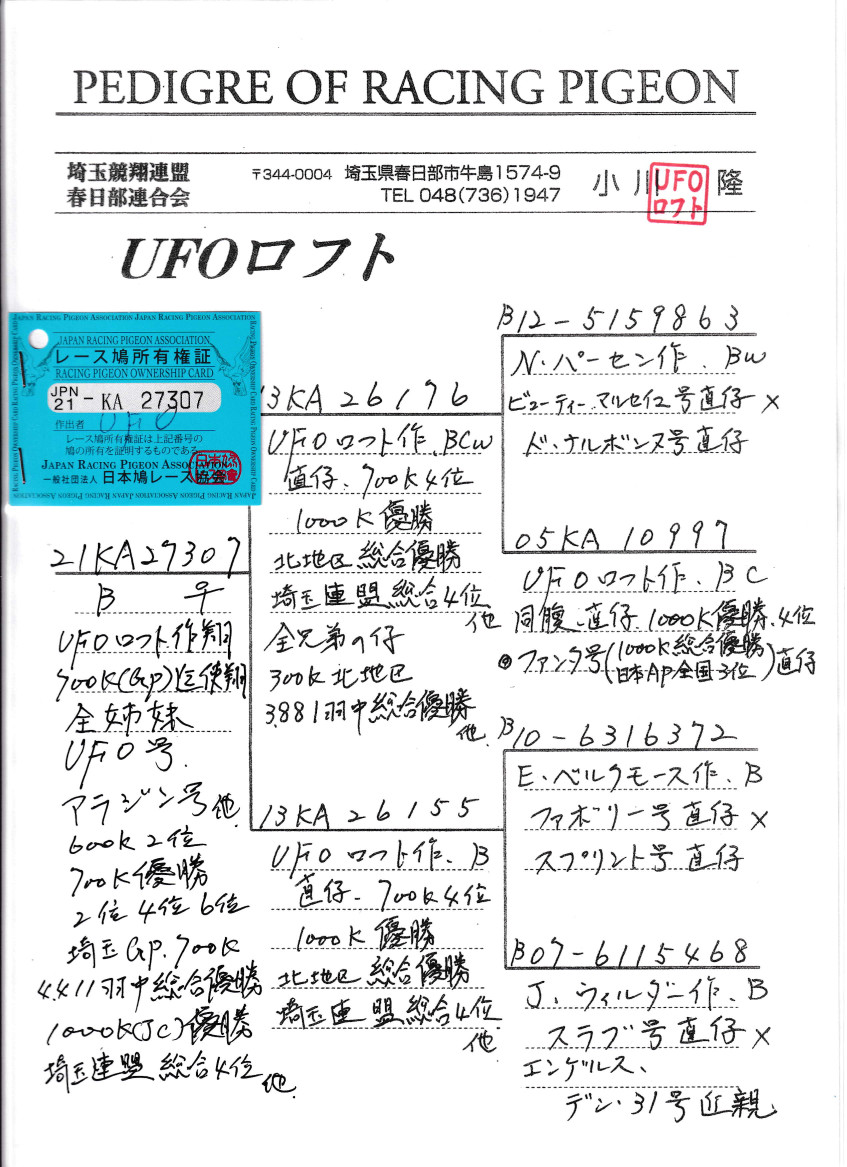 PEDIGRE OF RACING PIGEON
埼玉競翔連盟
春日部連合会
〒344-0004 埼玉県春日部市牛島1574-9
TEL 048(736)1947
小川 隆
UFO
ロフト
UFOロフト
JAPAN RACING PIGEON ASSOCIATION JAPAN RACING PIGEON ASSOCIATION
JAPAN RACING PIGEON ASSOCIATION
レース鳩所有権証
RACING PIGEON OWNERSHIP CARD
JPN
21 - KA 27307
作出者 UFO
レース鳩所有権証は上記番号の
鳩の所有を証明するものである
JAPAN RACING PIGEON ASSOCIATION
一般社団法人 日本鳩レース協会
21KA27307
B ♀
UFOロフト作翔
700K(GP)迄使翔
全姉妹
UFO号.
アラジン号他
600K 2位
700K優勝
2位 4位 6位
埼玉GP.700K
4.411羽中総合優勝
1000K(JC)優勝
埼玉連盟総合4位他.
13KA26176
UFOロフト作、BCW
直仔、700K4位
1000K優勝
北地区総合優勝
埼玉連盟総合4位
他
全兄弟の仔
300K北地区
3.881羽中総合優勝
他.
13KA26155
UFOロフト作、B
直仔、700K4位
1000K優勝
北地区総合優勝
埼玉連盟総合4位
他
B12-5159863
N.パーセン作、BW
ビューティーマルセイユ号直仔×
ド.ナルボンヌ号直仔
05KA10997
UFOロフト作、BC
同腹、直仔、1000K優勝、4位
ファンタ号(1000K総合優勝
日本AP全国3位)直仔
B10-6316372
E.ベルクモース作、B
ファボリー号直仔×
スプリント号直仔
B07-6115468
J.ウィルダー作、B
スラブ号直仔×
エンゲルス、
デン.31号近親